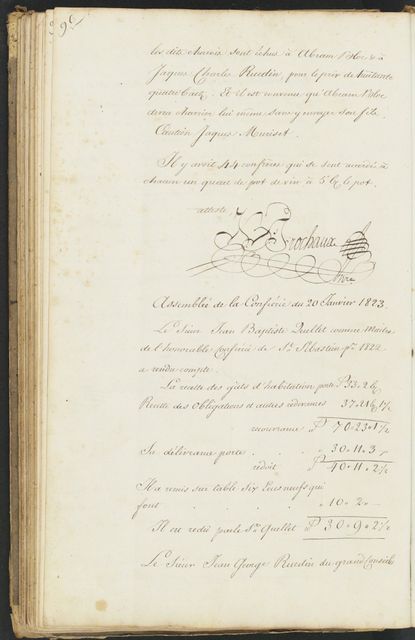 les dits charois sont échus à Abram Bloc & à
Jaques Charles Ruedin, pour le prix de huitante
quatre batz. Et il est convenu qu'Abram Bloc
devra charrier lui même sans y envoyer son fils.
Caution Jaques Muriset.
Il y avoit 44 confreres qui se sont accordés à
chacun un quart de pot de vin à 5 bz le pot.
atteste,
Frochaux
Assemblée de la Confrérie du 20 Janvier 1823
Le Sieur Jean Baptiste Quellet comme Maitre
de l'honorable confrérie de St. Sébastien pr. 1822
a rendu compte.
La recette des giets d'habitation porte 33.2
Recette des Obligations & autres redevances 37.21 1/2
recouvrance 70.23.1/2
Sa délivrance porte 30.11.3
redoit 40.11.2 1/2
Il a remis sur table Six Ecus neufs qui
font 10.2
Il est redû par le Sr Quellet 30.9.2 1/2
Le Sieur Jean George Ruedin du grand Conseil